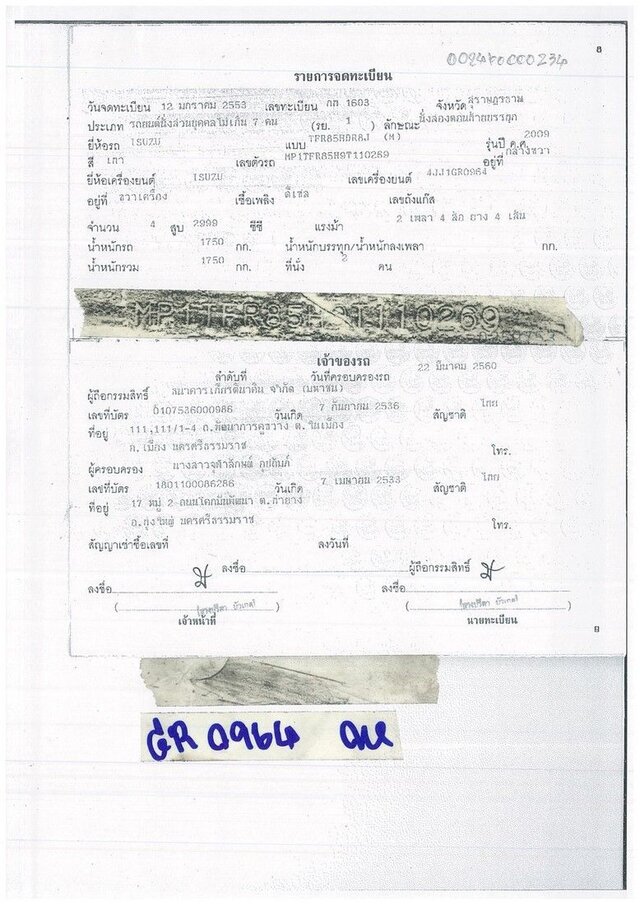 8
002460000234
รายการจดทะเบียน
วันจดทะเบียน 12 มกราคม 2553 เลขทะเบียน กก 1603 จังหวัด
ประเภท รถยนต์นั่งส่วนบุคคลไม่เกิน 7 คน (รย. 1 ) ลักษณะ นั่งสองตอนท้ายบรรทุก
ยี่ห้อรถ ISUZU แบบ (M) รุ่นปี ค.ศ. 2009
สี เทา เลขตัวรถ MP1TFR85H9T110269 อยู่ที่ กลางขวา
ยี่ห้อเครื่องยนต์ ISUZU เลขเครื่องยนต์ 4JJ1GR0964
อยู่ที่ ขวาเครื่อง เชื้อเพลิง ดีเซล เลขถังแก๊ส
จำนวน 4 สูบ 2999 ซีซี แรงม้า 2 เพลา 4 ล้อ ยาง 4 เส้น
น้ำหนักรถ 1750 กก. น้ำหนักบรรทุก/น้ำหนักลงเพลา กก.
น้ำหนักรวม 1750 กก. ที่นั่ง คน
เจ้าของรถ
ลำดับที่ วันที่ครอบครองรถ 22 มีนาคม 2560
ผู้ถือกรรมสิทธิ์ ธนาคารเกียรตินาคิน จำกัด (มหาชน)
เลขที่บัตร 0107536000986 วันเกิด 7 กันยายน 2536 สัญชาติ ไทย
ที่อยู่ 111,111/1-4 ถ.พัฒนาการคูขวาง ต.ในเมือง
อ.เมือง นครศรีธรรมราช โทร.
ผู้ครอบครอง นางสาว
เลขที่บัตร 1801100086286 วันเกิด 7 เมษายน 2533 สัญชาติ ไทย
ที่อยู่ 17 หมู่ 2 ต.ท่ายาง
อ.ทุ่งใหญ่ นครศรีธรรมราช โทร.
สัญญาเช่าซื้อเลขที่ ลงวันที่
ลงชื่อ ผู้ถือกรรมสิทธิ์
ลงชื่อ ลงชื่อ
เจ้าหน้าที่ นายทะเบียน
GR 0964